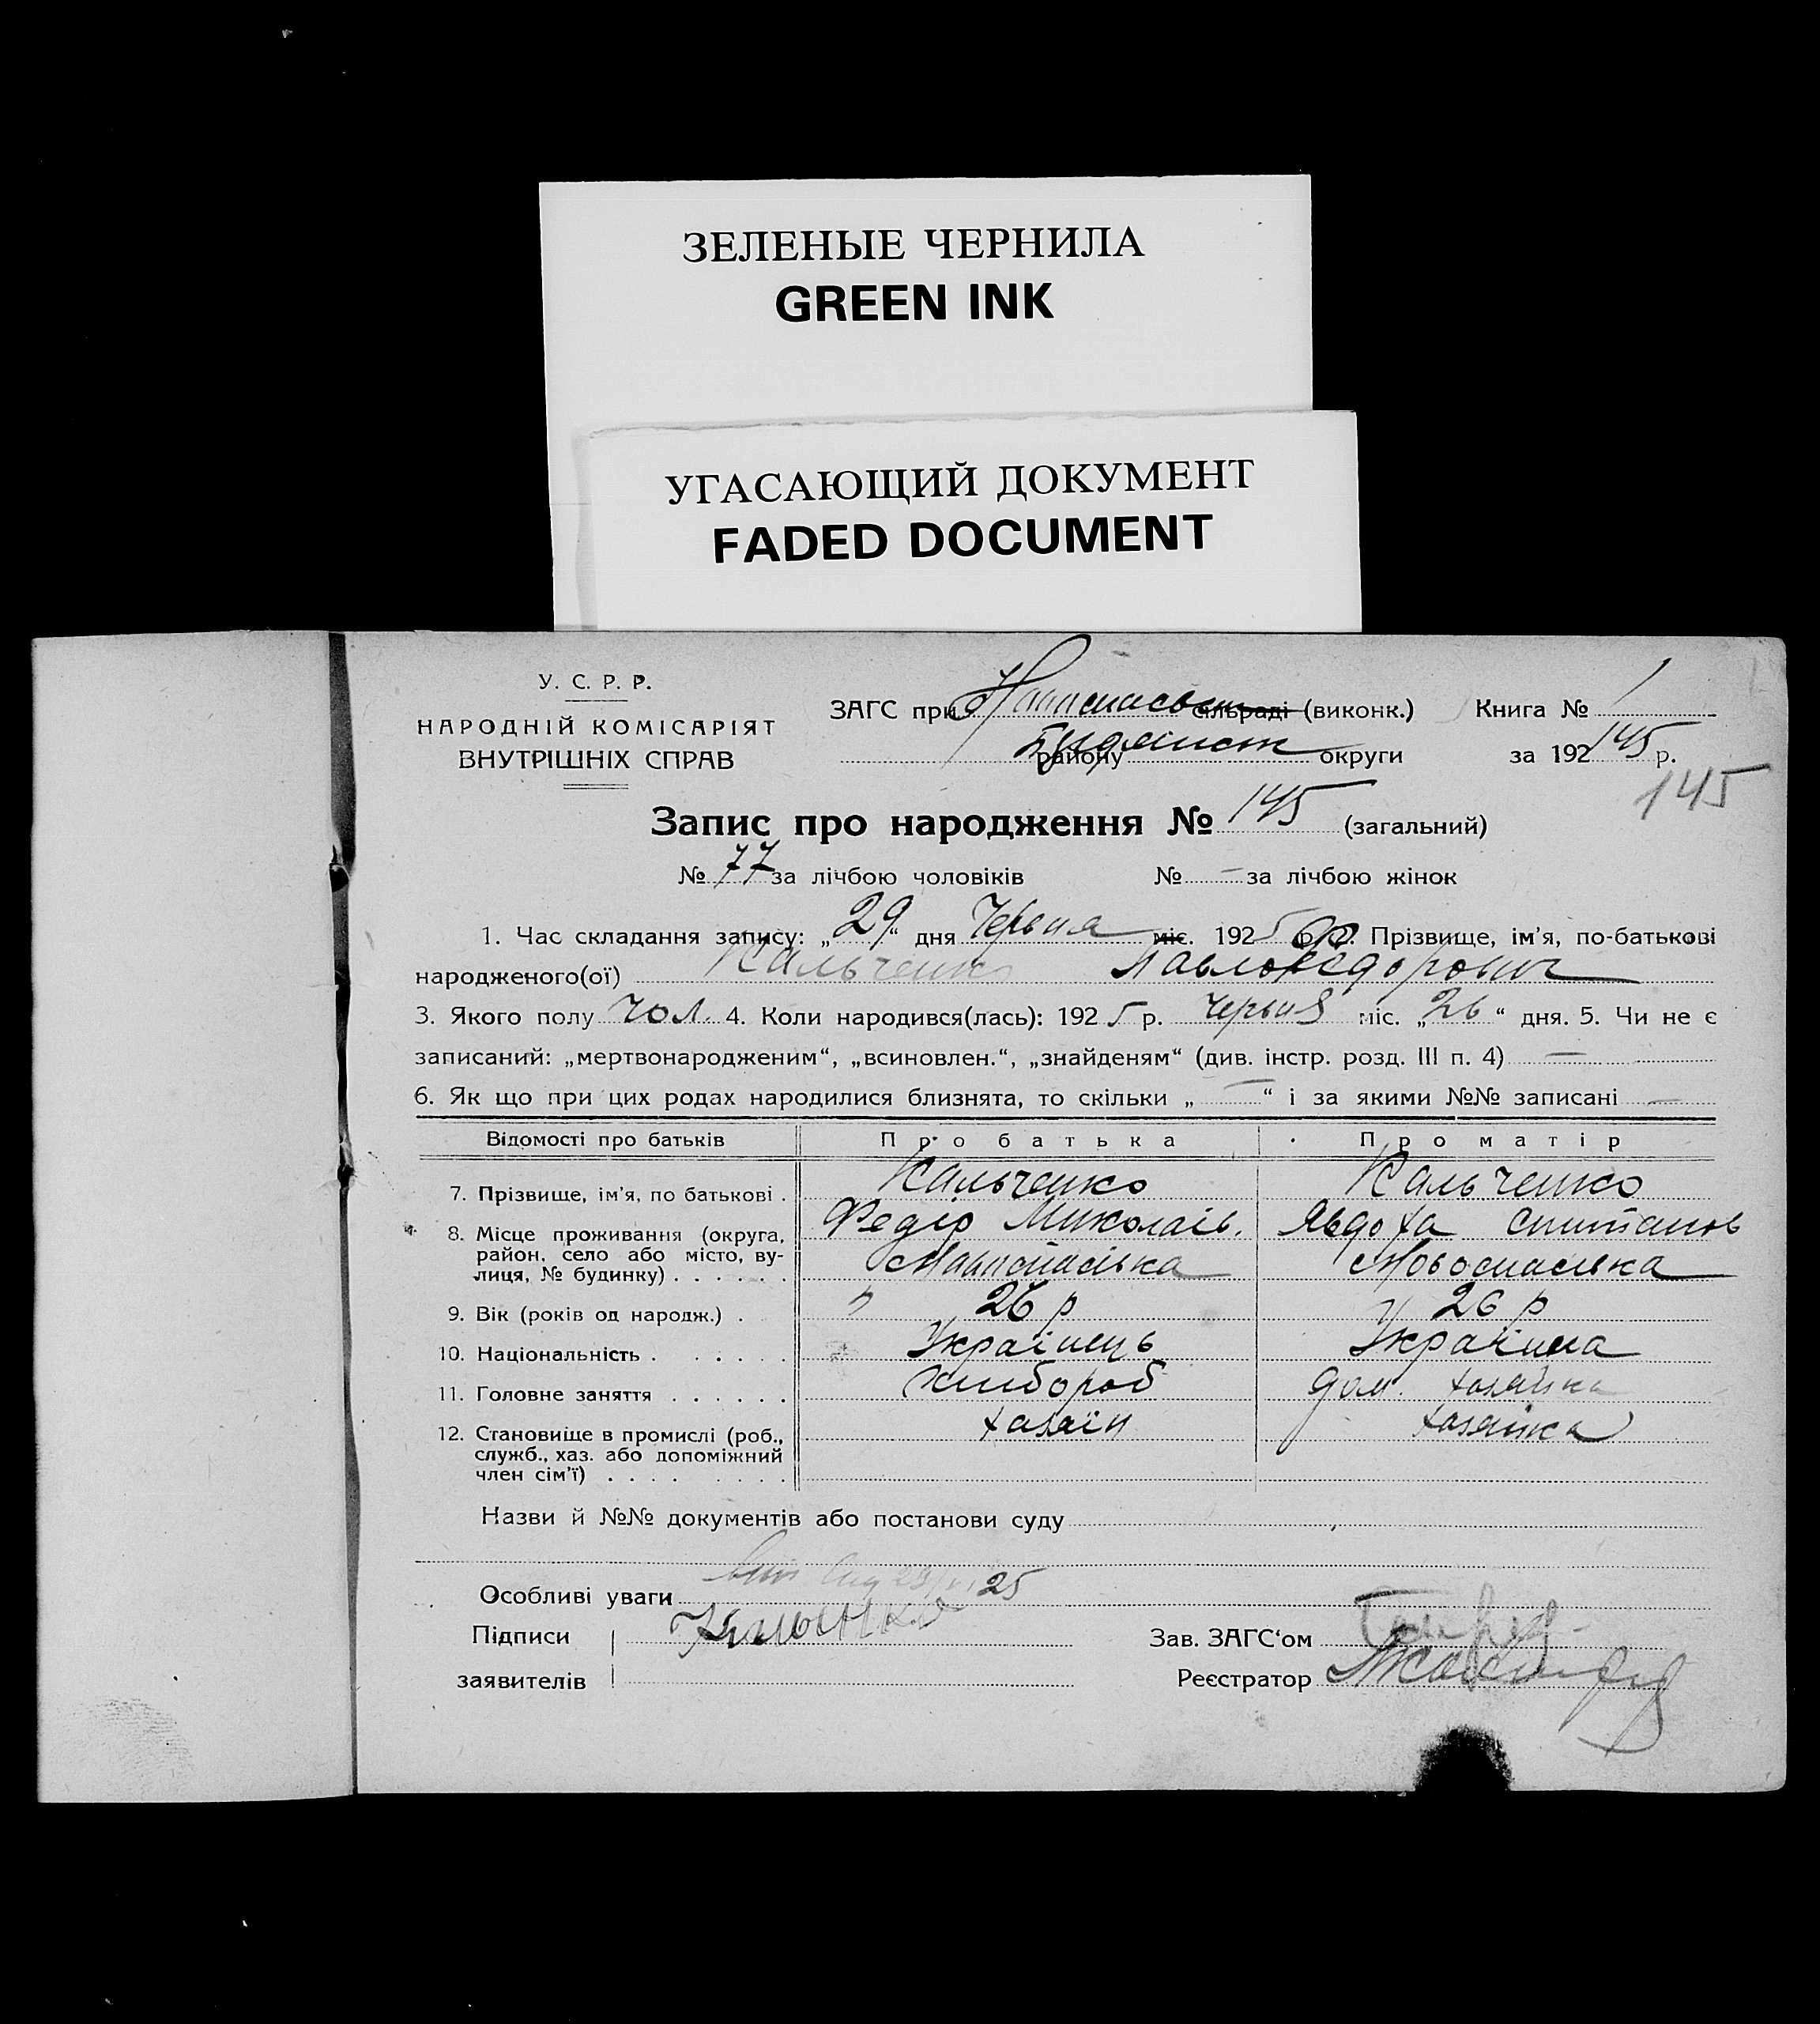 ЗЕЛЕНЫЕ ЧЕРНИЛА
GREEN INK
УГАСАЮЩИЙ ДОКУМЕНТ
FADED DOCUMENT
У. С. Р. Р.
НАРОДНІЙ КОМІСАРІЯТ
ВНУТРІШНІХ СПРАВ
ЗАГС при сільраді (виконк.) Книга № 1
району округи за 192 145 р.
145
Запис про народження № 145 (загальний)
№ 77 за лічбою чоловіків № — за лічбою жінок
1. Час складання запису: „29“ дня Червня міс. 1925 р. Прізвище, ім’я, по-батькові
народженого(ої) Кальченко Павло Федорович
3. Якого полу чол. 4. Коли народився(лась): 1925 р. Червня міс. „26“ дня. 5. Чи не є
записаний: „мертвонародженим“, „всиновлен.“, „знайденям“ (див. інстр. розд. III п. 4) —
6. Як що при цих родах народилися близнята, то скільки „—“ і за якими №№ записані —
Відомості про батьків Про батька Про матір
7. Прізвище, ім’я, по батькові . Кальченко Кальченко
Федір Миколаїв. Явдоха
8. Місце проживання (округа,
район, село або місто, ву-
лиця, № будинку) . . . . . . Новоспаська
9. Вік (років од народж.) . 26 р 26 р
10. Національність . . . . . . Українець Українка
11. Головне заняття . . . . . . Хлібороб дом. хазяйка
12. Становище в промислі (роб., хазяїн хазяйка
служб., хаз. або допоміжний
член сім’ї) . . . . . . . .
Назви й №№ документів або постанови суду
Особливі уваги 25
Підписи
заявителів
Зав. ЗАГС‘ом
Реєстратор